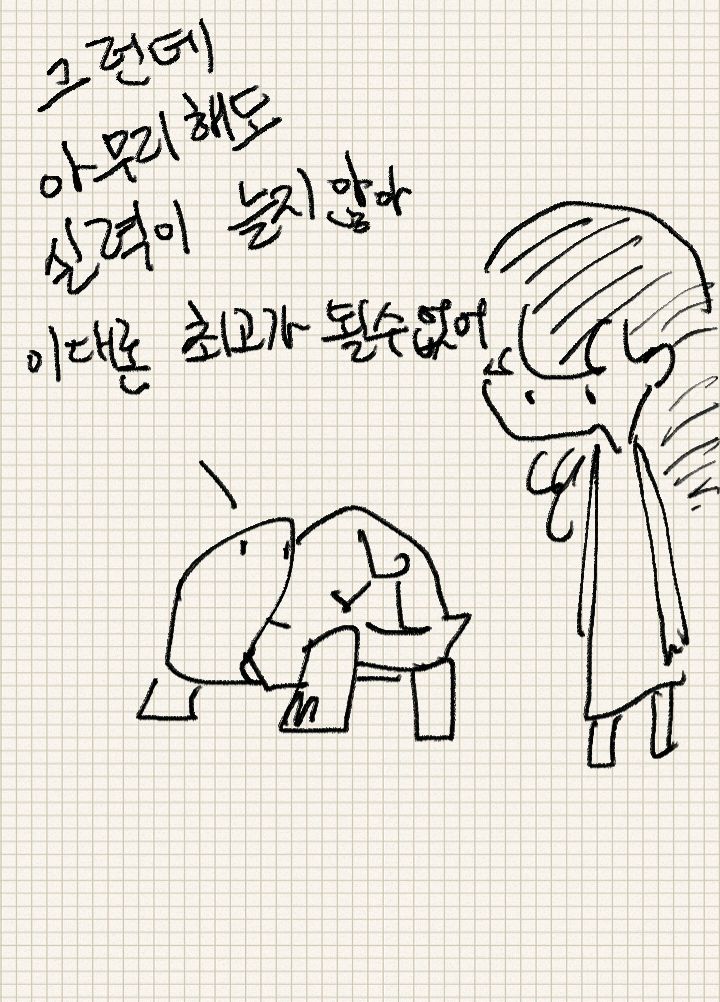 그런데
아무리 해도
실력이 늘지 않아
이대론 최고가 될수없어